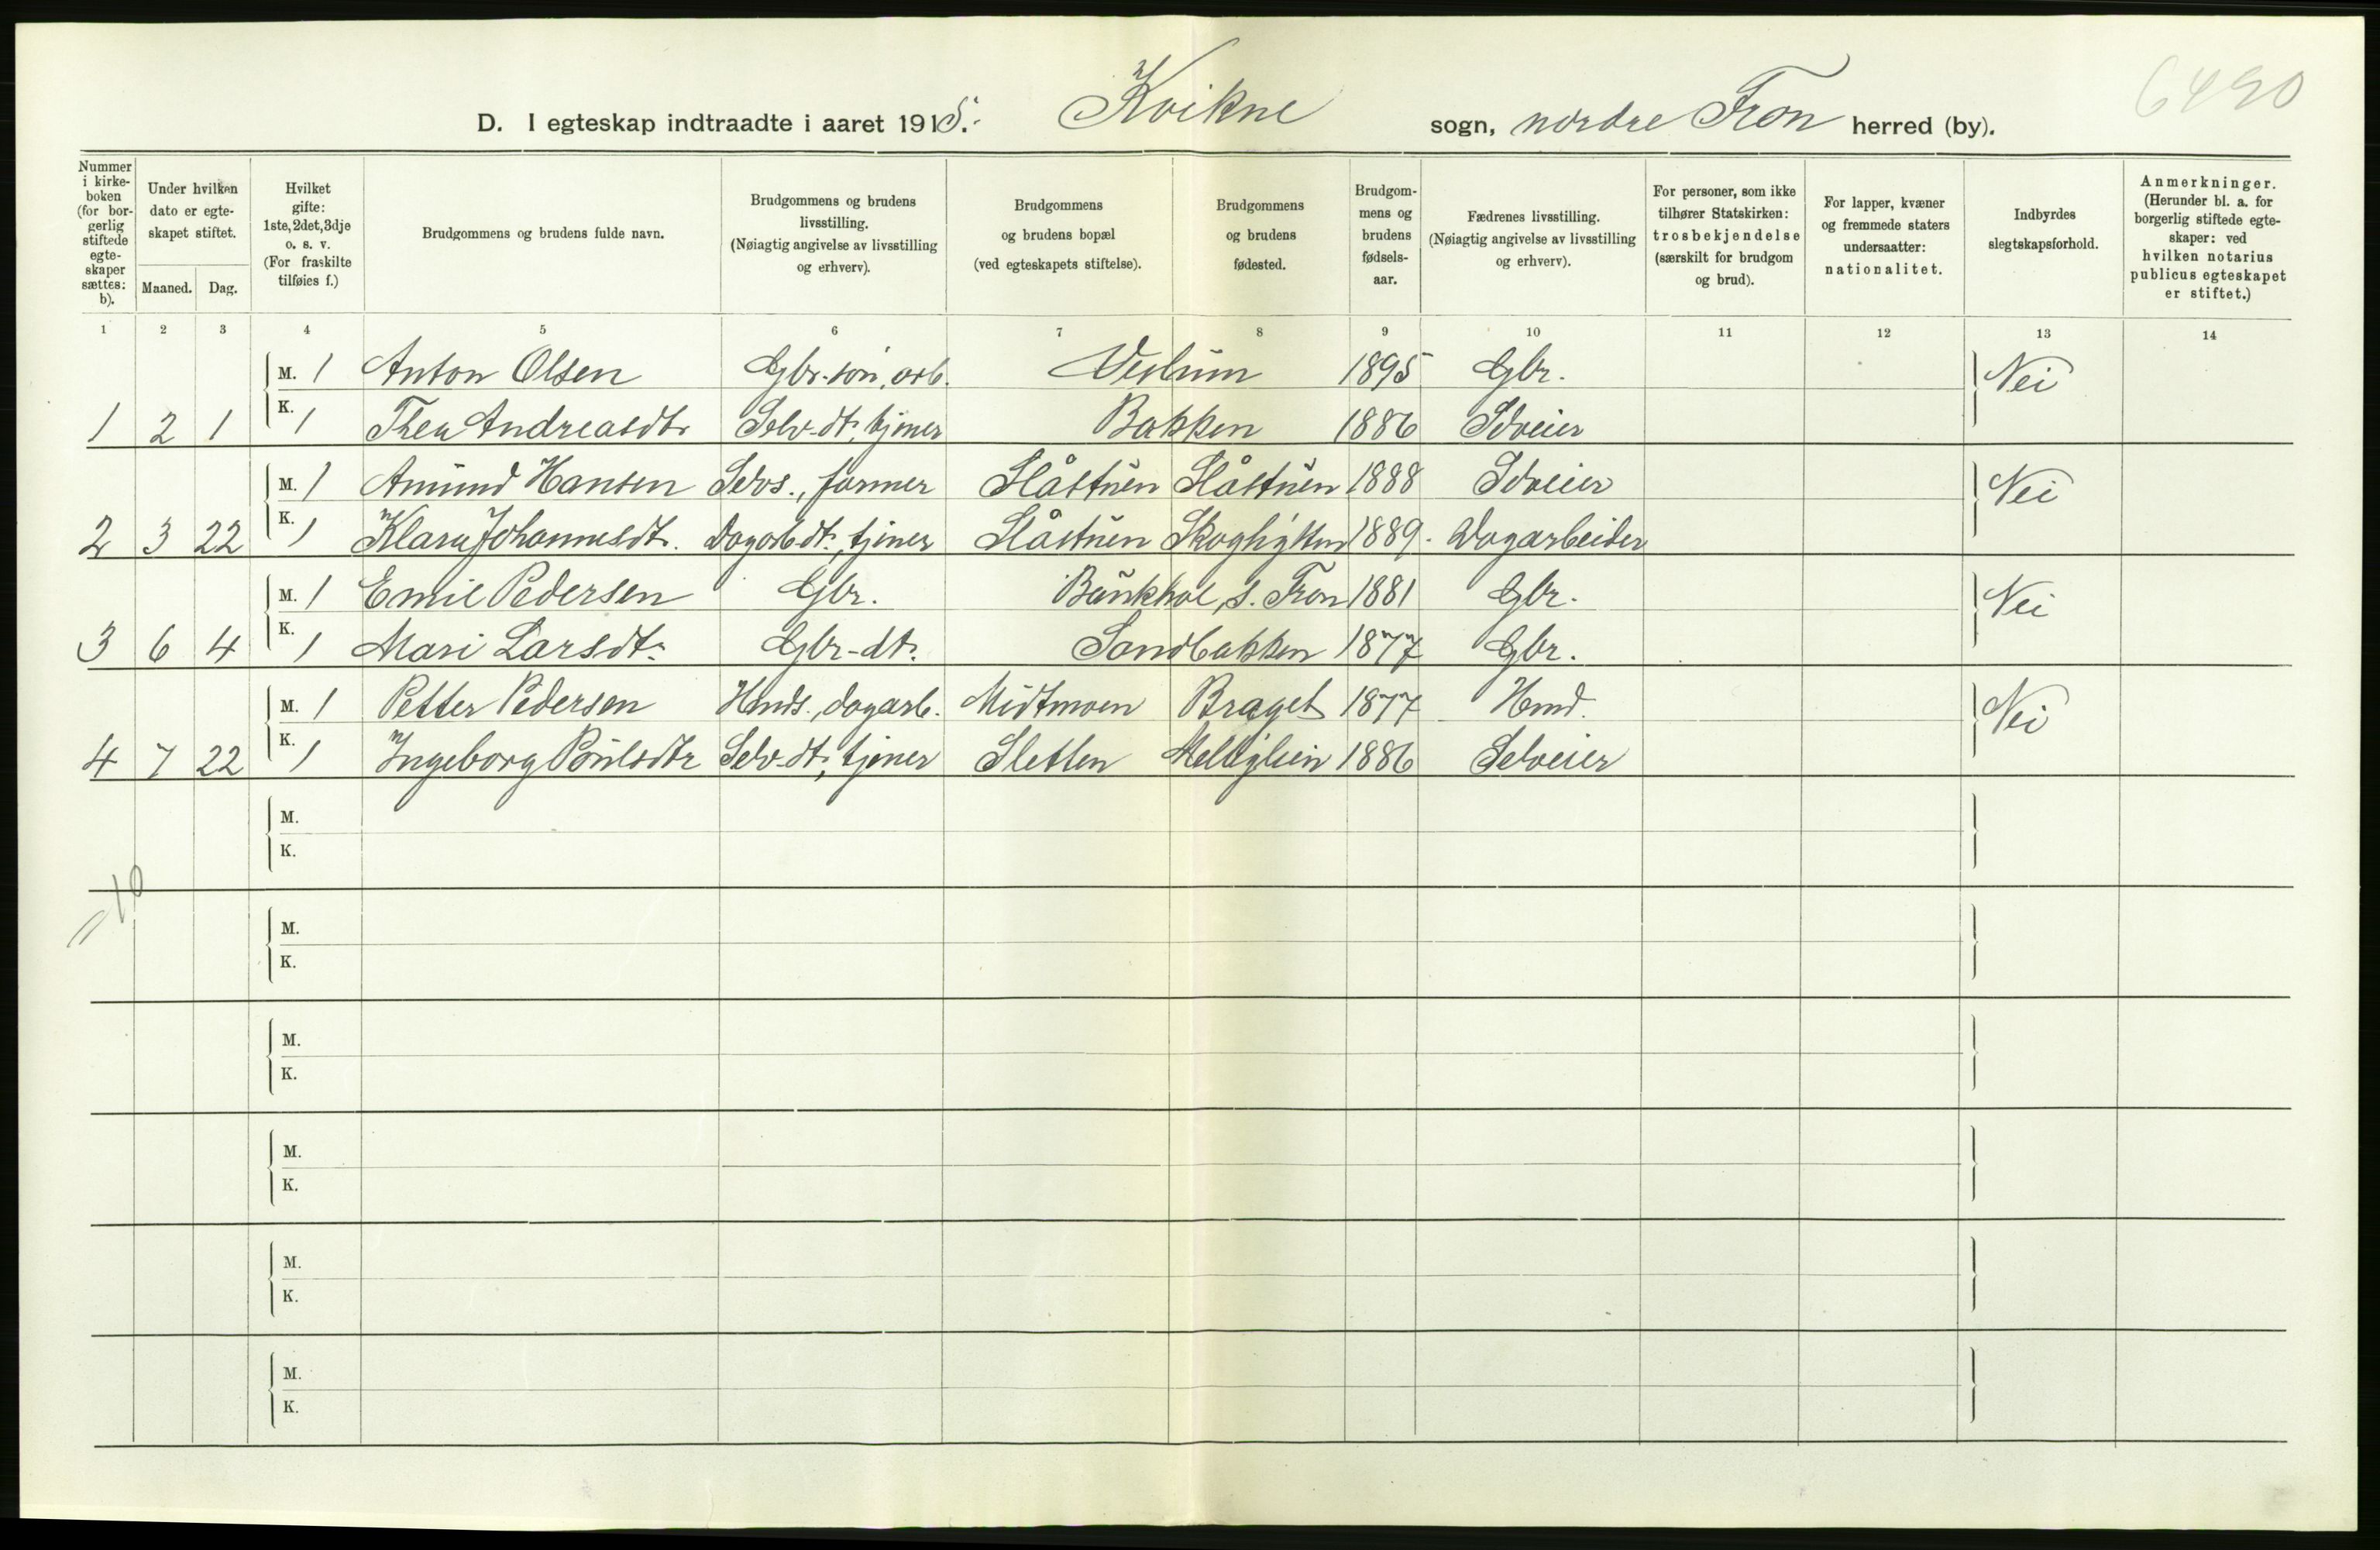 6490
D. I egteskap indtraadte i aaret 1915. Kvikne sogn, nordre Fron herred (by).
Nummer i kirke-boken (for bor-gerlig stiftede egte-skaper sættes: b).
Under hvilken dato er egte-skapet stiftet.
Maaned. Dag.
Hvilket gifte: 1ste, 2det, 3dje o. s. v. (For fraskilte tilføies f.)
Brudgommens og brudens fulde navn.
Brudgommens og brudens livsstilling. (Nøiagtig angivelse av livsstilling og erhverv).
Brudgommens og brudens bopæl (ved egteskapets stiftelse).
Brudgommens og brudens fødested.
Brudgom-mens og brudens fødsels-aar.
Fædrenes livsstilling. (Nøiagtig angivelse av livsstilling og erhverv).
For personer, som ikke tilhører Statskirken: trosbekjendelse (særskilt for brudgom og brud).
For lapper, kvæner og fremmede staters undersaatter: nationalitet.
Indbyrdes slegtskapsforhold.
Anmerkninger. (Herunder bl. a. for borgerlig stiftede egte-skaper: ved hvilken notarius publicus egteskapet er stiftet.)
1 2 3 4 5 6 7 8 9 10 11 12 13 14
M. 1 Anton Olsen Gbr.-søn, arb. Veslum 1895 Gbr. Nei
1 2 1 K. 1 Thea Andreasdtr Selv-dt., tjener Bakken 1886 Selveier
M. 1 Amund Hansen Selvs., farmer Slåstuen Slåstuen 1888 Selveier Nei
2 3 22 K. 1 Klara Johannesdt. Dagarb.dt., tjener Slåstuen Skoglykken 1889. Dagarbeider
M. 1 Emil Pedersen Gbr. Baukhol, s. Fron 1881 Gbr. Nei
3 6 4 K. 1 Mari Larsdt. Gbr-dt. Sandbakken 1877 Gbr.
M. 1 Petter Pedersen Hmds., dagarb. Midtmoen Braget 1877 Hmd. Nei
4 7 22 K. 1 Ingeborg Paulsdtr Selv-dt., tjener Sletten 1886 Selveier
M.
K.
10
M.
K.
M.
K.
M.
K.
M.
K.
M.
K.